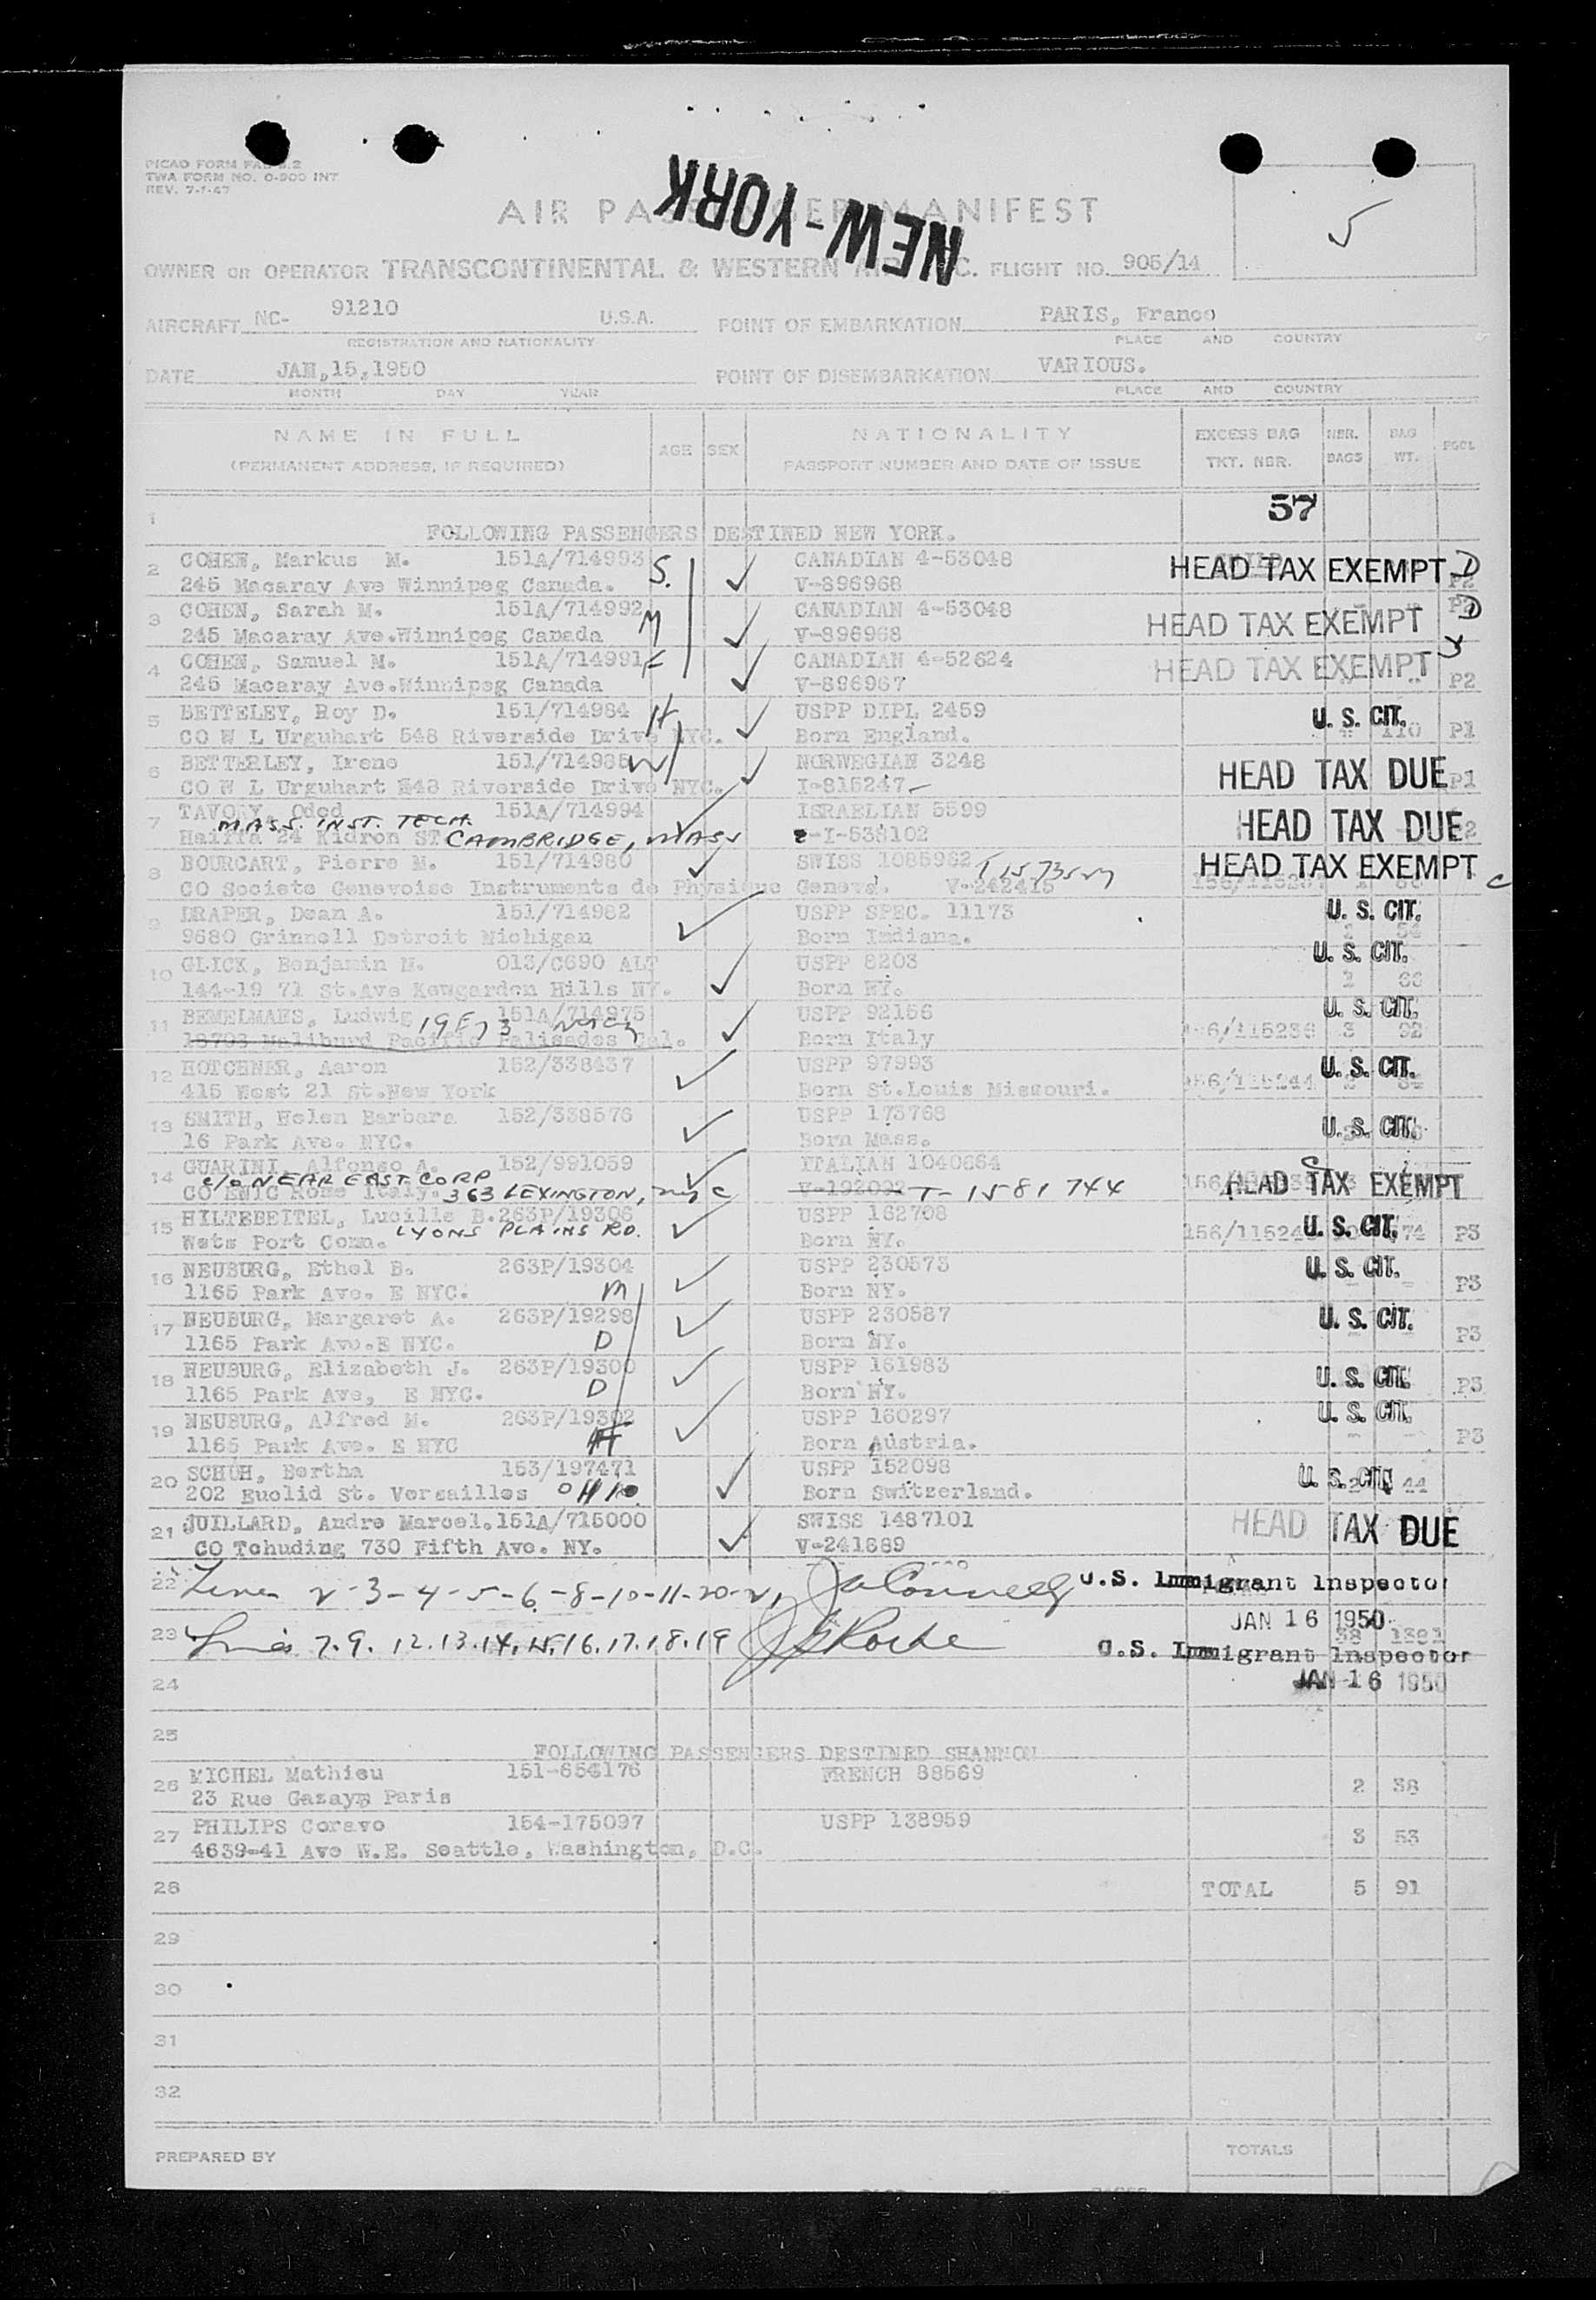 PICAO FORM FAL 2.2
TWA FORM NO. O-900 INT
REV. 7-1-47
NEW-YORK
AIR PASSENGER MANIFEST
5
OWNER OR OPERATOR TRANSCONTINENTAL & WESTERN AIR INC. FLIGHT NO. 905/14
AIRCRAFT NC- 91210 U.S.A. POINT OF EMBARKATION PARIS, France
REGISTRATION AND NATIONALITY PLACE AND COUNTRY
DATE JAN,15,1950 POINT OF DISEMBARKATION VARIOUS.
MONTH DAY YEAR PLACE AND COUNTRY
NAME IN FULL AGE SEX NATIONALITY EXCESS BAG NBR. BAG PGCL
(PERMANENT ADDRESS, IF REQUIRED) PASSPORT NUMBER AND DATE OF ISSUE TKT. NBR. BAGS WT.
57
1 FOLLOWING PASSENGERS DESTINED NEW YORK.
2 COHEN, Markus M. 151A/714993 S. CANADIAN 4-53048 HEAD TAX EXEMPT D
245 Macaray Ave Winnipeg Canada. V-896968 P2
3 COHEN, Sarah M. 151A/714992 M CANADIAN 4-53048 HEAD TAX EXEMPT P2 D
245 Macaray Ave.Winnipeg Canada V-896968
4 COHEN, Samuel M. 151A/714991 F CANADIAN 4-52624 HEAD TAX EXEMPT
245 Macaray Ave.Winnipeg Canada V-896967 P2
5 BETTELEY, Roy D. 151/714984 H USPP DIPL 2459 U. S. CIT.
CO W L Urguhart 548 Riverside Drive NYC. Born England. 110 P1
6 BETTERLEY, Irene 151/714985 W NORWEGIAN 3248 HEAD TAX DUE P1
CO W L Urguhart 548 Riverside Drive NYC. I-815247
7 TAVOLY, Oded 151A/714994 ISRAELIAN 5599 HEAD TAX DUE 2
MASS. INST. TECH.
Haiffa 24 Kidron ST CAMBRIDGE, MASS -I-538102
8 BOURCART, Pierre M. 151/714980 SWISS 1085962 HEAD TAX EXEMPT
CO Societe Genevoise Instruments de Physique Geneva. V-242415 C
9 DRAPER, Dean A. 151/714982 USPP SPEC. 11173 U. S. CIT.
9680 Grinnell Detroit Michigan Born Indiana. 54
10 GLICK, Benjamin M. 013/C690 ALT USPP 8203 U. S. CIT.
144-19 71 St.Ave Kewgarden Hills NY. Born NY. 2 66
11 BEMELMAES, Ludwig 151A/714975 USPP 92156 U. S. CIT.
18703 Maliburd Pacific Palisades Cal. Born Italy 156/115236 3 92
12 HOTCHNER, Aaron 152/338437 USPP 97993 U. S. CIT.
415 West 21 St.New York Born St.Louis Missouri. 156/115244
13 SMITH, Helen Barbara 152/338576 USPP 173768 U. S. CIT.
16 Park Ave. NYC. Born Mass.
14 GUARINI, Alfonso A. 152/991059 ITALIAN 1040664 HEAD TAX EXEMPT
C/O NEAR EAST CORP
CO ENIC Rome Italy. 363 LEXINGTON, NYC V-192092 T-1581744
15 HILTEBEITEL, Lucille B. 263P/19306 USPP 162708 U. S. CIT.
Wets Port Conn. LYONS PLAINS RD. Born NY. 74 P3
16 NEUBURG, Ethel B. 263P/19304 USPP 230573 U. S. CIT.
1165 Park Ave. E NYC. M Born NY. P3
17 NEUBURG, Margaret A. 263P/19298 USPP 230587 U. S. CIT.
1165 Park Ave.E NYC. D Born NY. P3
18 NEUBURG, Elizabeth J. 263P/19300 USPP 161983 U. S. CIT.
1165 Park Ave, E NYC. D Born NY. P3
19 NEUBURG, Alfred M. 263P/19302 USPP 160297 U. S. CIT.
1165 Park Ave. E NYC Born Austria. P3
20 SCHUH, Bertha 153/197471 USPP 152098 U. S. CIT.
202 Euclid St. Versailles OHIO Born Switzerland. 2 44
21 JUILLARD, Andre Marcel. 151A/715000 SWISS 1487101 HEAD TAX DUE
CO Tchuding 730 Fifth Ave. NY. V-241689
22 Lines 2-3-4-5-6-8-10-11-20-21 U.S. Immigrant Inspector
JAN 16 1950
23 Lines 7.9.12.13.14.15.16.17.18.19 JRoche 38 1381
U.S. Immigrant Inspector
24 JAN 16 1950
25 FOLLOWING PASSENGERS DESTINED SHANNON
26 MICHEL Mathieu 151-654176 FRENCH 88569
23 Rue Gazayp Paris 2 38
27 PHILIPS Coravo 154-175097 USPP 138959
4639-41 Ave W.E. Seattle, Washington, D.C. 3 53
28 TOTAL 5 91
29
30
31
32
PREPARED BY TOTALS